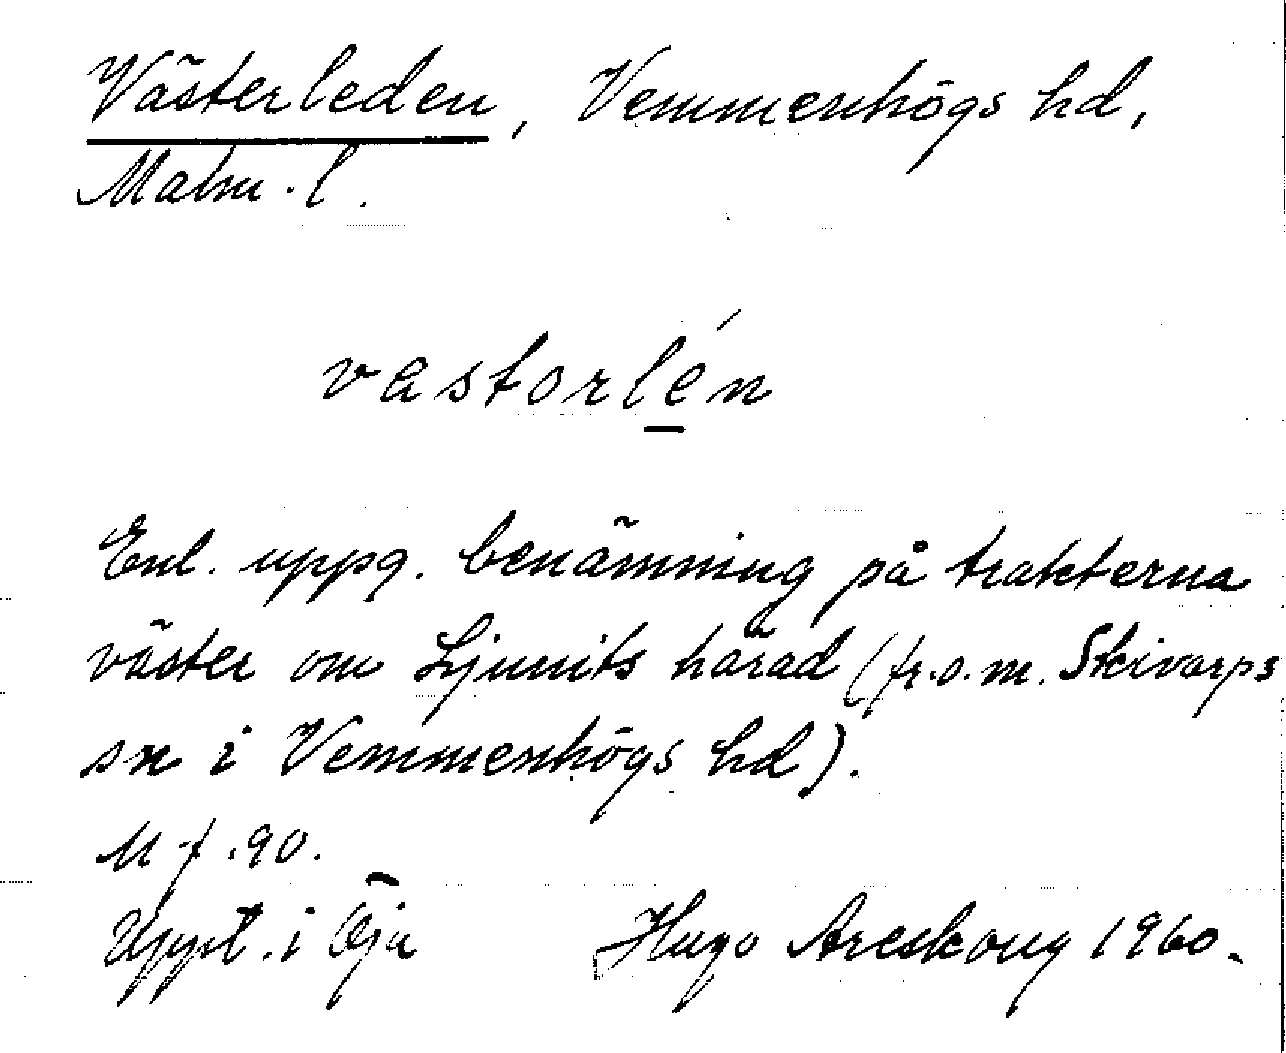 Västerleden, Vemmenhögs hd,
Malm. l.
vastorlén
Enl. uppg. benämning på trakterna
väster om Ljunits härad (fr.o.m. Skivarps
sn i Vemmenhögs hd).
M f. 90.
Uppt. i Öja Hugo Areskoug 1960.